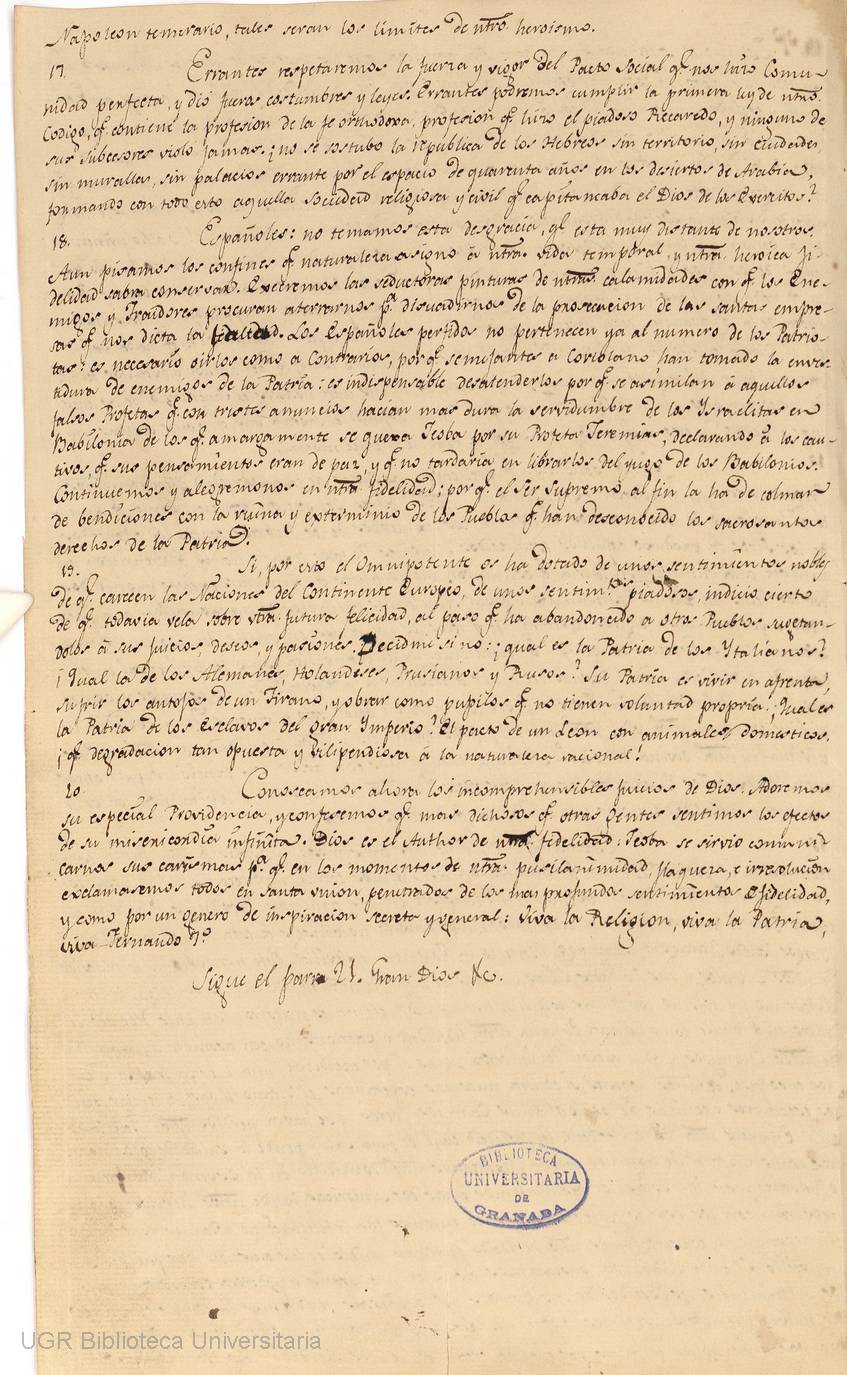 Napoleon temerario, tales seran los limites de ntro. heroismo.
17.
Errantes respetaremos la fuerza y vigor del Pacto Social q.e nos hizo Comu-
nidad perfecta, y dió fueros costumbres y leyes. Errantes podremos cumplir la primera ley de ntro.
Codigo, q.e contiene la profesion de la fe orthodoxa, profesion q.e hizo el piadoso Recaredo, y ninguno de
sus subcesores violo jamas. ¿no se sostubo la republica de los Hebreos sin territorio, sin ciudades,
sin murallas, sin palacios errante por el espacio de quarenta años en los desiertos de Arabia,
formando con todo esto aquella sociedad religiosa y civil q.e capitaneaba el Dios de los Exercitos?
18.
Españoles: no temamos esta desgracia, q.e esta muy distante de nosotros.
Aun pisamos los confines q.e naturaleza asigno á ntra. vida temporal, y ntra. heroica fi-
delidad sabra conservar. Execremos las seductoras pinturas de ntras. calamidades con q.e los Ene-
migos y Traidores procuran aterrarnos p.a disuadirnos de la prosecucion de las santas empre-
sas q.e nos dicta la fidelidad. Los Españoles perfidos no pertenecen ya al numero de los Patrio-
tas: es necesario oirlos como a Contrarios, por q.e semejantes a Coriolano han tomado la enves-
tidura de enemigos de la Patria: es indispensable desatenderlos por q.e se asimilan á aquellos
falsos Profetas q.e con tristes anuncios hacian mas dura la servidumbre de los Ysraelitas en
Babilonia de los q.e amargamente se quexa Jeoba por su Profeta Jeremias, declarando á los cau-
tivos, q.e sus pensamientos eran de paz, y q.e no tardaria en librarlos del yugo de los Babilonios.
Continuemos y alegremonos en ntra. fidelidad; por q.e el Ser Supremo al fin la ha de colmar
de bendiciones con la ruina y exterminio de los Pueblos q.e han desconocido los sacrosantos
derechos de la Patria.
19.
Si, por esto el Omnipotente os ha dotado de unos sentimientos nobles
de q.e carecen las Naciones del Continente Europeo, de unos sentim.tos piadosos, indicio cierto
de q.e todavia vela sobre vtra. futura felicidad, al paso q.e ha abandonado a otros Pueblos sugetan-
dolos á sus juicios, deseos, y pasiones. Decidme si no: ¿qual es la Patria de los Ytalianos?
¿Qual la de los Alemanes, Holandeses, Prusianos y Rusos? Su Patria es vivir en afrenta,
sufrir los antojos de un Tirano, y obrar como pupilos q.e no tienen voluntad propria. ¿Qual es
la Patria de los Esclavos del gran Ymperio? El pacto de un Leon con animales domesticos.
¡q.e degradacion tan opuesta y vilipendiosa á la naturaleza racional!
20
Conoscamos ahora los incomprehensibles juicios de Dios. Adoremos
su especial Providencia, y confesemos q.e mas dichosos q.e otras gentes sentimos los efectos
de su misericordia infinita. Dios es el Author de ntra. fidelidad: Jeoba se sirvio comuni
carnos sus carismas p.a q.e en los momentos de ntra. pusilanimidad, flaqueza, e irresolucion
exclamasemos todos en santa union, penetrados de los mas profundos sentimientos de fidelidad,
y como por un genero de inspiracion secreta y general: viva la Religion, viva la Patria,
viva Fernando 7.o
Sigue el parr. 21. Gran Dios &c.
BIBLIOTECA
UNIVERSITARIA
DE
GRANADA
UGR Biblioteca Universitaria